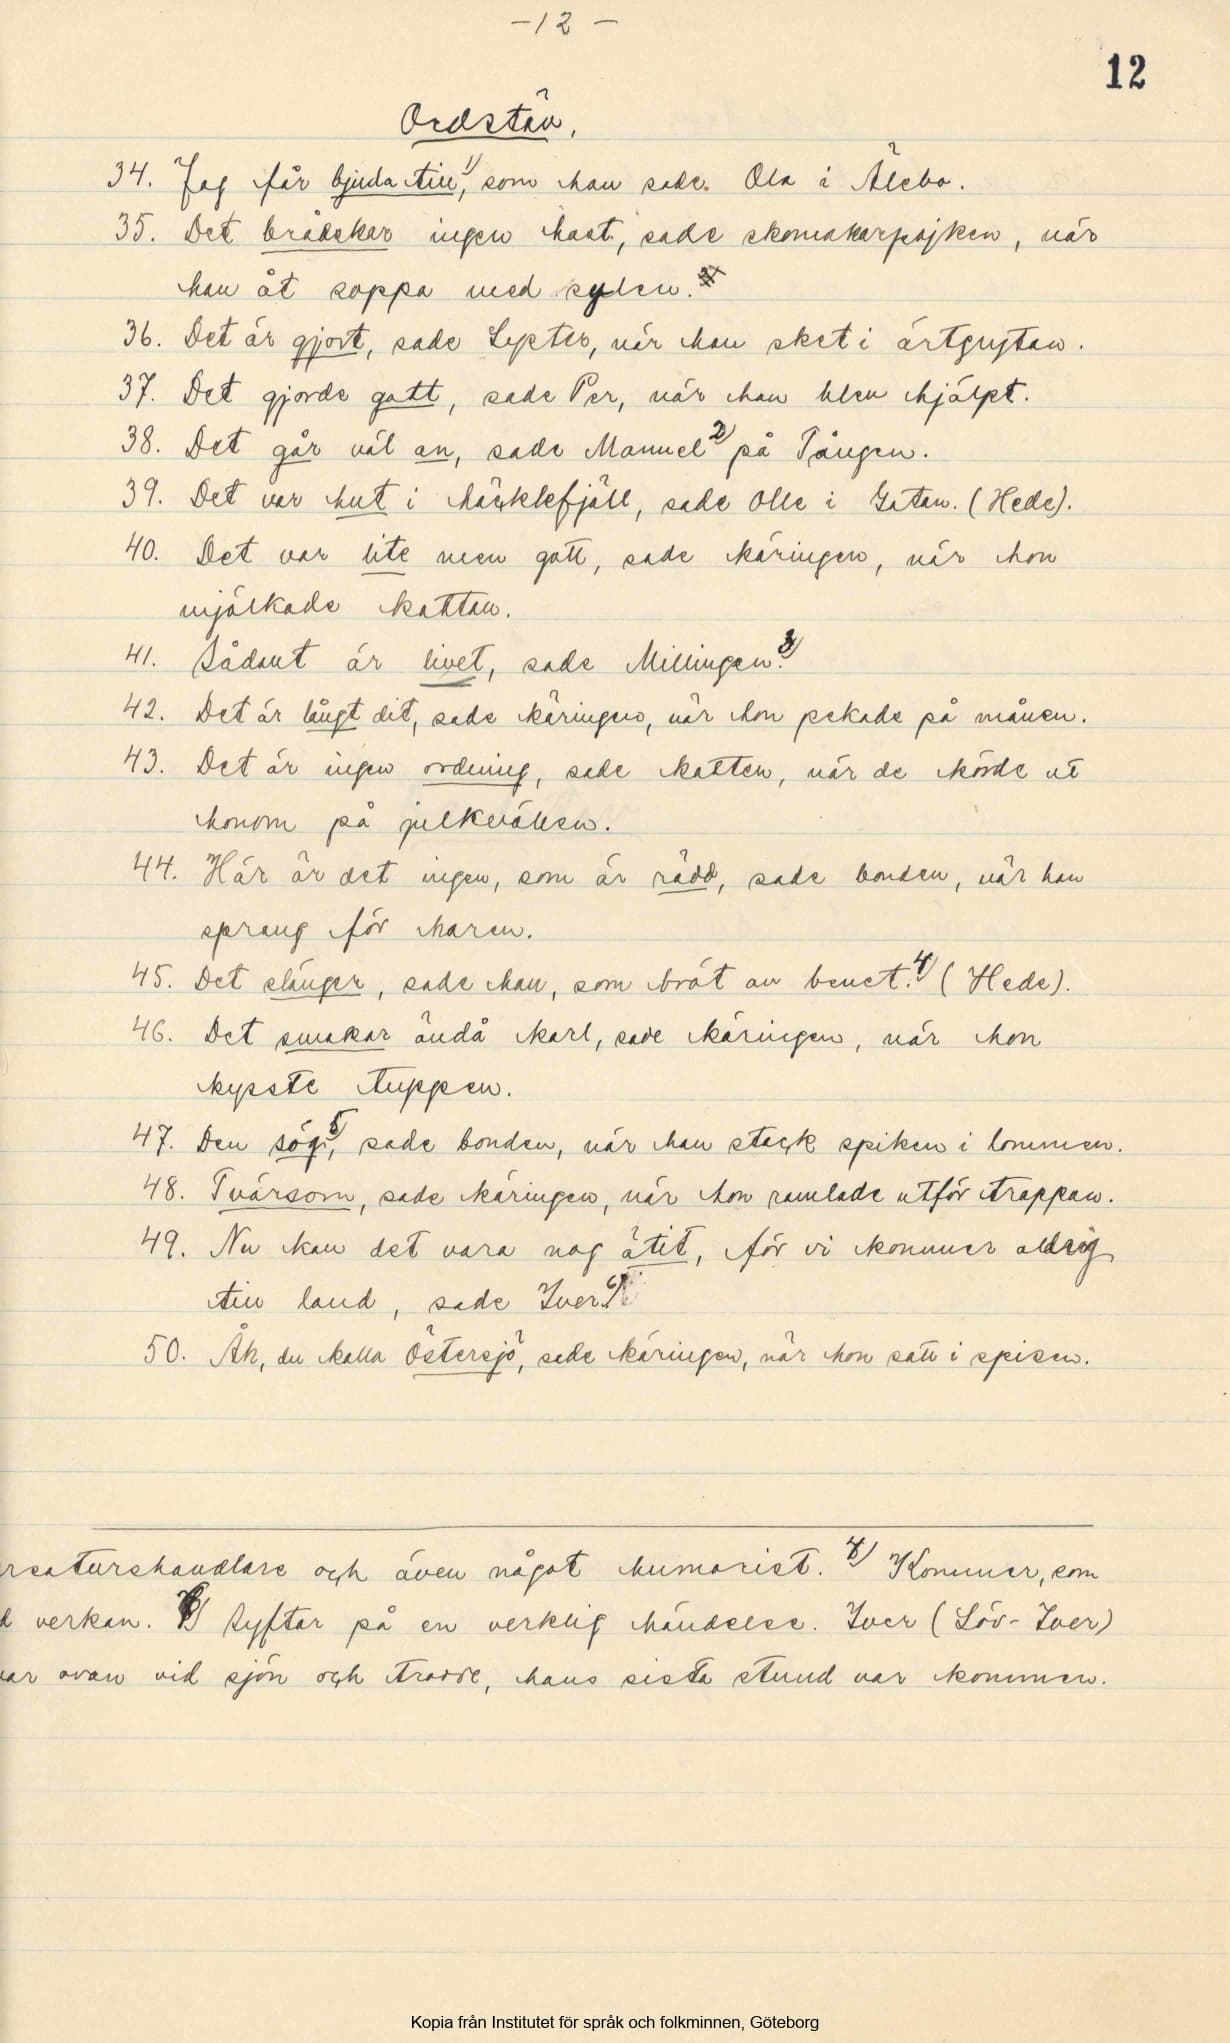 -12-
12
Ordstäv.
34. Jag får bjuda till,1) som han sade. Ola i Älebo.
35. Det brådskar ingen hast, sade skomakarpojken, när
han åt soppa med sylen.
36. Det är gjort, sade Lypter, när han sket i ärtgrytan.
37. Det gjorde gott, sade Per, när han blev hjälpt.
38. Det går väl an, sade Manuel2) på Tången.
39. Det var hut i häcklefjäll, sade Olle i Gatan. (Hede).
40. Det var lite men gott, sade käringen, när hon
mjölkade kattan.
41. Sådant är livet, sade Millingen.3)
42. Det är långt dit, sade käringen, när hon pekade på månen.
43. Det är ingen ordning, sade katten, när de körde ut
honom på julkvällen.
44. Här är det ingen, som är rädd, sade bonden, när han
sprang för haren.
45. Det slänger, sade han, som bröt av benet.4) (Hede).
46. Det smakar ändå karl, sade käringen, när hon
kysste tuppen.
47. Den sög,5) sade bonden, när han stack spiken i lommen.
48. Tvärsom, sade käringen, när hon ramlade utför trappan.
49. Nu kan det vara nog ätit, för vi kommer aldrig
till land, sade Iver.6)
50. Åh, du kalla Östersjö, sade käringen, när hon satt i spisen.
rsaturshandlare och även något humorist. 4) Kommer, som
verkan. 6) Syftar på en verklig händelse. Iver (Löv-Iver)
var ovan vid sjön och trodde, hans sista stund var kommen.
Kopia från Institutet för språk och folkminnen, Göteborg